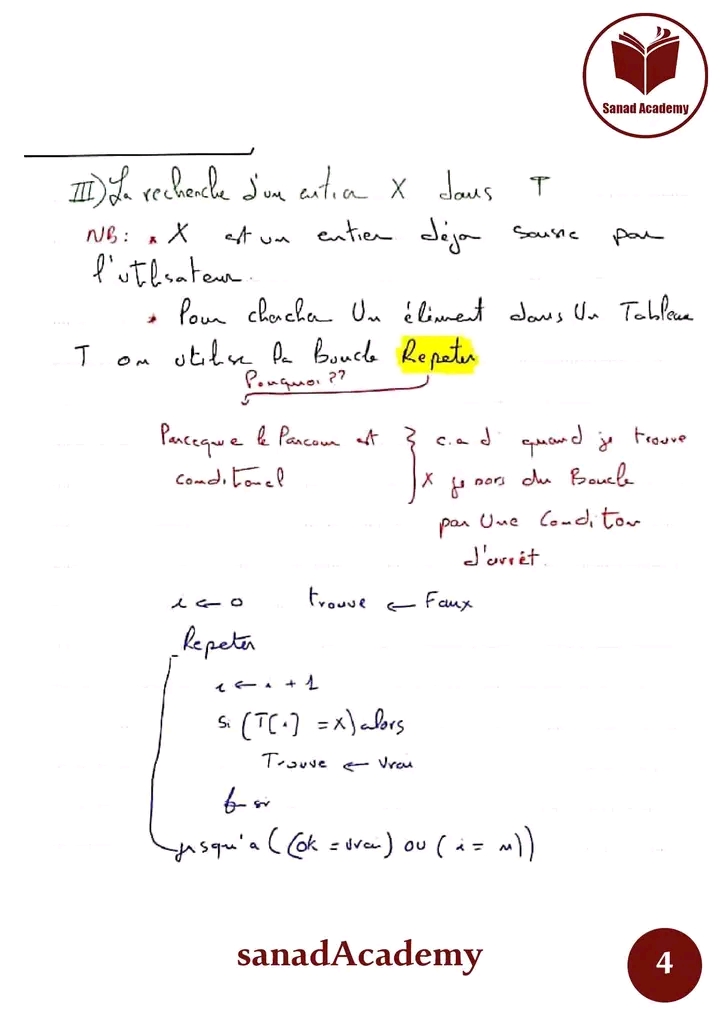 Sanad Academy
III) La recherche d'un entier X dans T
NB: * X est un entier déja saisie par
l'utlsateur.
* Pour chercher Un élement dans Un Tableau
T on utilise la Boucle Repeter
Pourquoi ??
Parceque le Parcour est
conditonel
c.a d quand je trouve
X je sors du Boucle
par Une Conditon
d'arrêt.
i ← 0 trouve ← Faux
Repeter
i ← i + 1
Si (T[i] = X) alors
Trouve ← vrai
fin si
jusqu'a ((ok = vrai) ou (i = n))
sanadAcademy
4